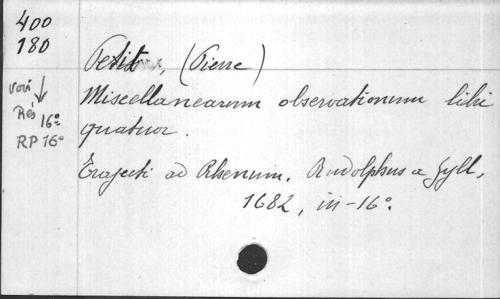 400
180
voir
Rés 16°
RP 16°
Petit, (Pierre)
Miscellanearum observationum libri
quatuor.
Trajecti ad Rhenum, Rudolphus a Zyll,
1682, in-16°.